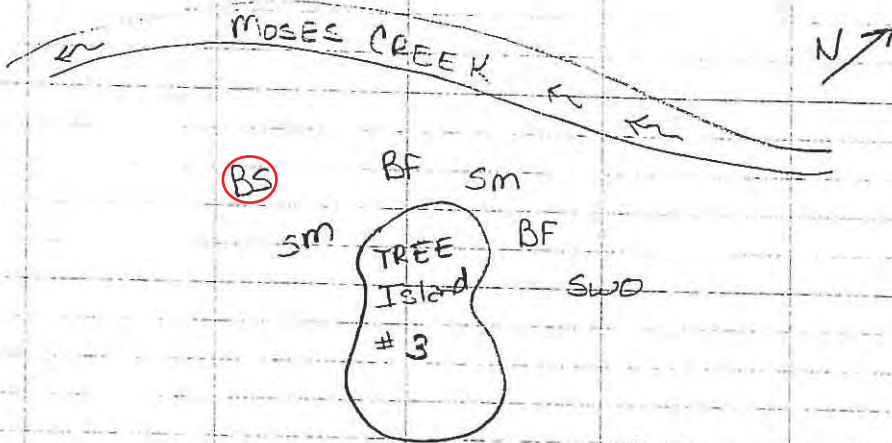 MOSES CREEK
N
BS
BF
Sm
Sm
BF
SWO
TREE
Island
# 3